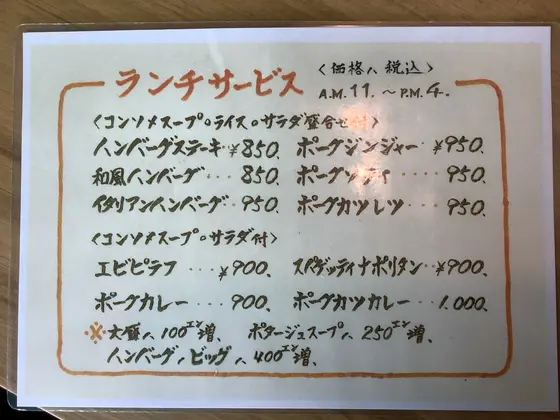 ランチサービス 〈価格ハ税込〉
A.M.11.〜P.M.4.
〈コンソメスープ。ライス。サラダ盛合せ付〉
ハンバーグステーキ・¥850、 ポークジンジャー ¥950、
和風ハンバーグ・・・850、 ポークソティ ・・・950、
イタリアンハンバーグ・・950、 ポークカツレツ ・・950、
〈コンソメスープ。サラダ付〉
エビピラフ ・・・¥900、 スパゲッティナポリタン・・¥900、
ポークカレー ・・・900、 ポークカツカレー・・・1.000、
※大盛ハ100エン増、 ポタージュスープハ250エン増、
ハンバーグノビッグハ400エン増、